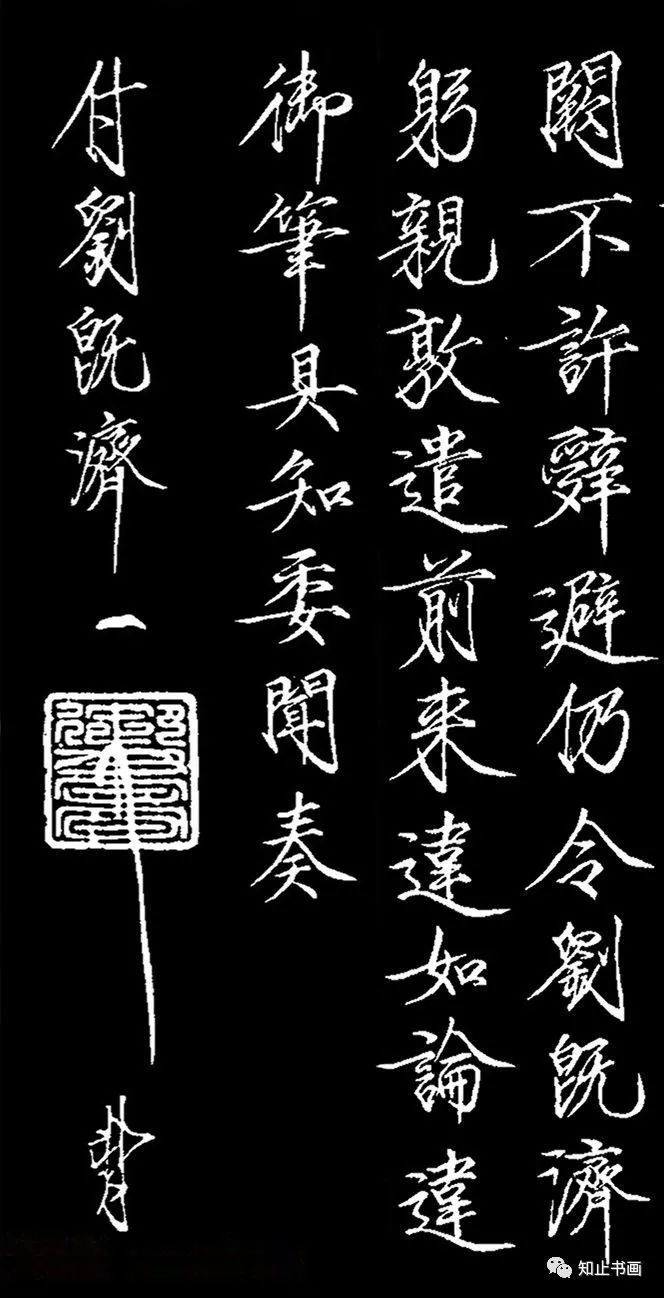 闕不許辭避仍令劉既濟
躬親敦遣前来違如論違
御筆具知委聞奏
付劉既濟
一
知止书画